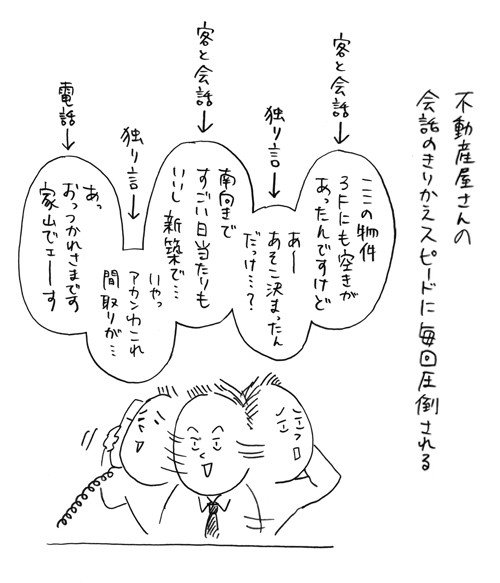 不動産屋さんの
会話のきりかえスピードに毎回圧倒される
客と会話
ここの物件
3Fにも空きが
あったんですけど
独り言
あー
あそこ決まったん
だっけ…?
客と会話
南向きで
すごい日当たりも
いいし新築で…
独り言
いやっ
アカンわこれ
間取りが…
電話
あっ
おつかれさまです
家山でェーす